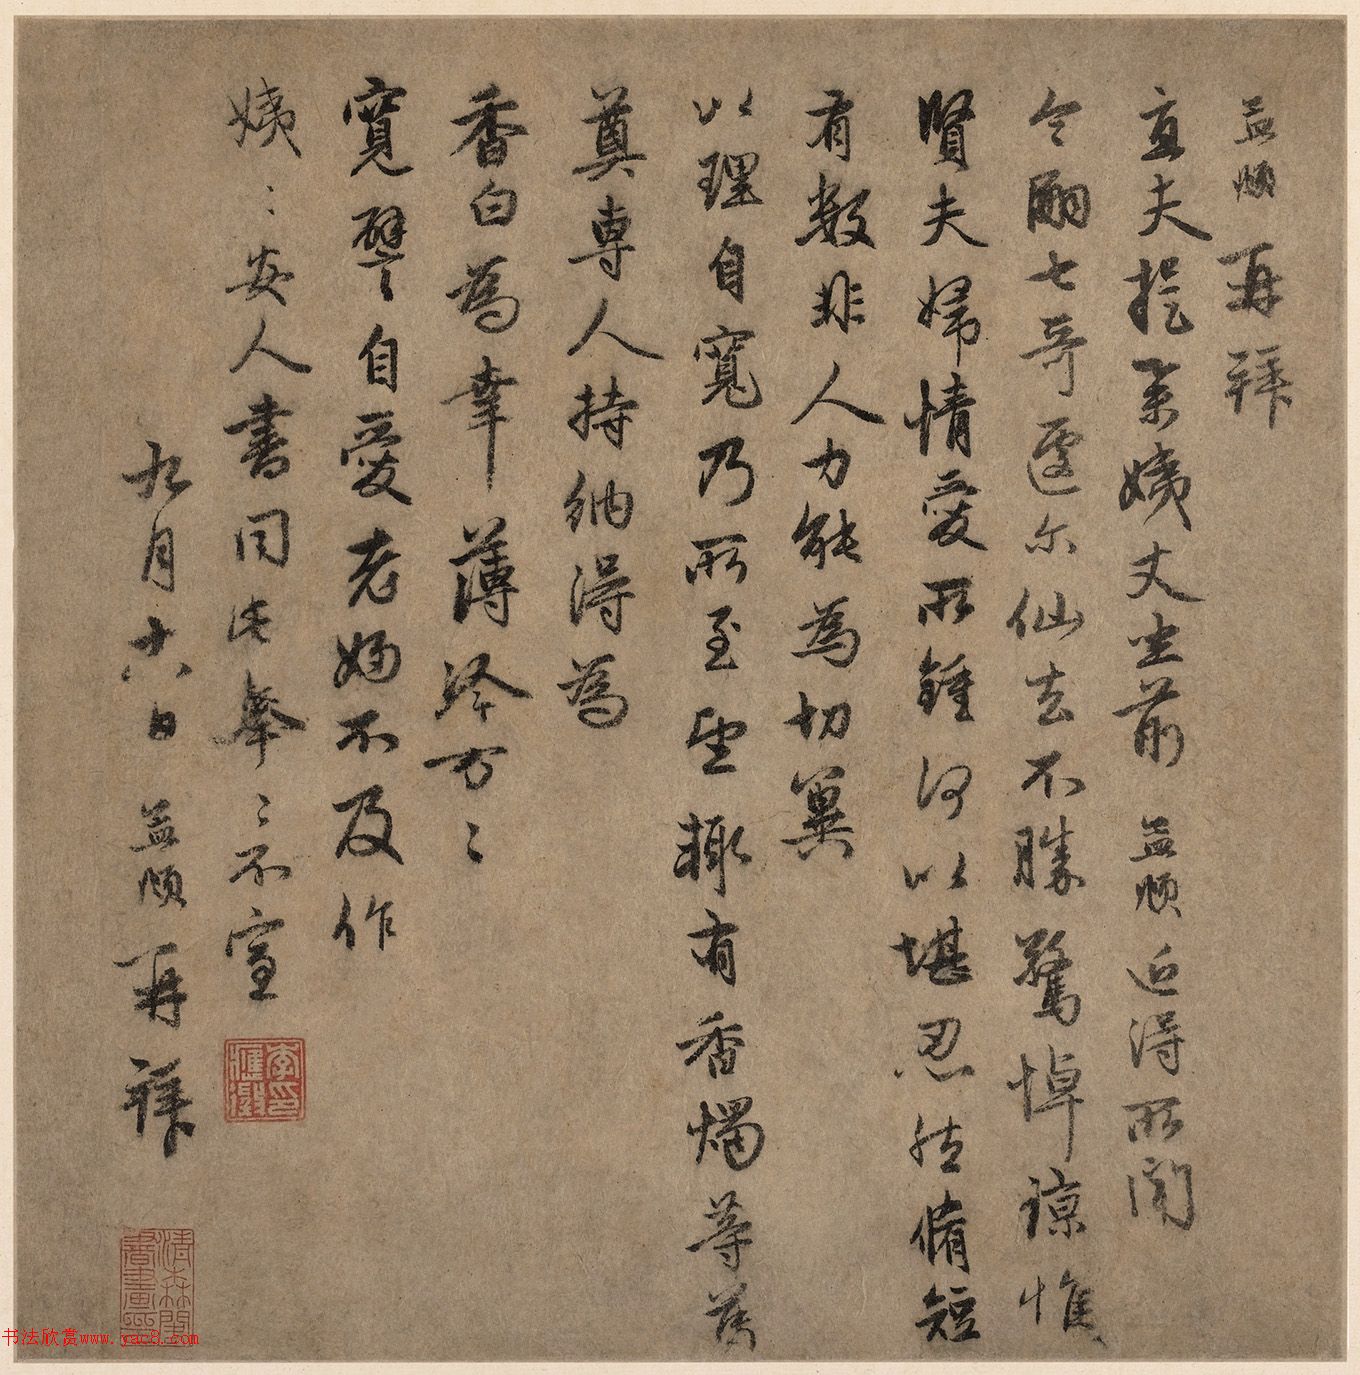 益順再拜
直夫提舉姨丈坐前益順近得所聞
令嗣七哥遽尔仙去不勝驚悼諒惟
賢夫婦情愛所鍾何以堪忍然脩短
有數非人力能為切冀
以理自寬乃所至望輒有香燭等爲
奠專人持納得為
香白為幸薄冷万〻
寬譬自愛老婦不及作
姨〻安人書同此舉〻不宣
九月十六日益順再拜
书法欣赏www.yac8.com